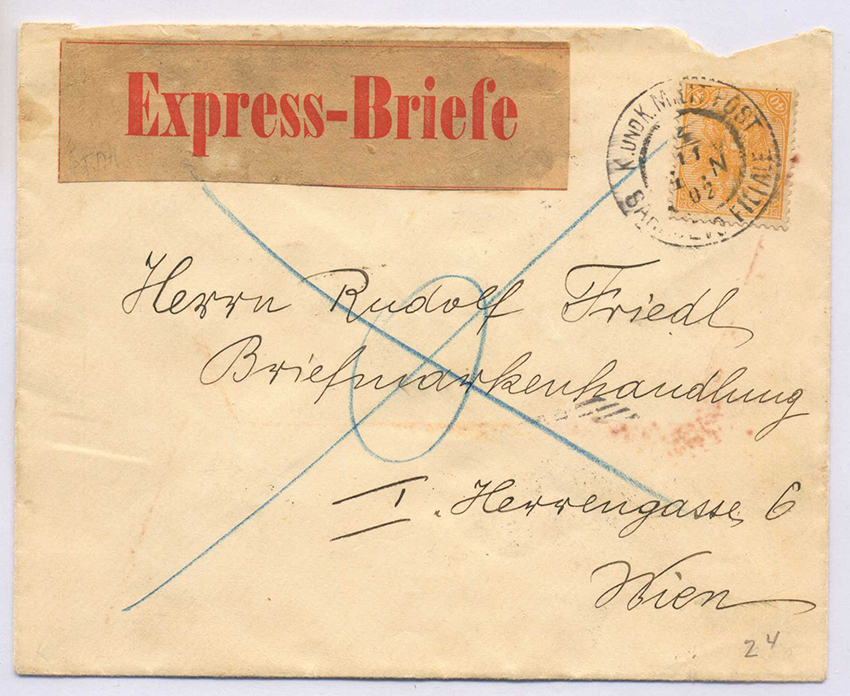 Express-Briefe
K. UND K. MIL. POST
02
FILIALE
Herrn Rudolf Friedl
Briefmarkenhandlung
I. Herrengasse 6
Wien
24